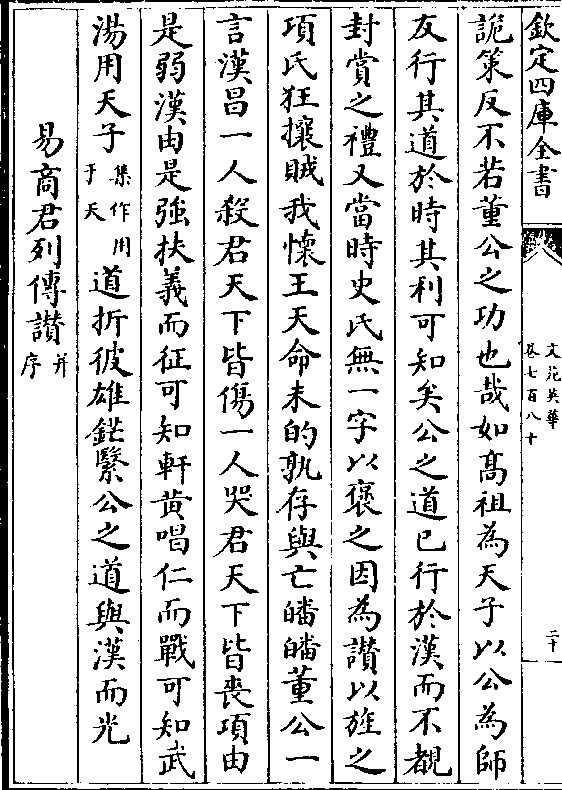 欽定四庫全書
文苑英華
卷七百八十
二十
詭策反不若董公之功也哉如髙祖為天子以公為師
友行其道於時其利可知矣公之道已行於漢而不覩
封賞之禮又當時史氏無一字以褒之因為讃以旌之
項氏狂攘賊我懷王天命未的孰存與亡皤皤董公一
言漢昌一人殺君天下皆傷一人哭君天下皆喪項由
是弱漢由是強扶義而征可知軒黄唱仁而戰可知武
湯用天子集作用于天道折彼雄鋩繄公之道與漢而光
易商君列傳讃并序